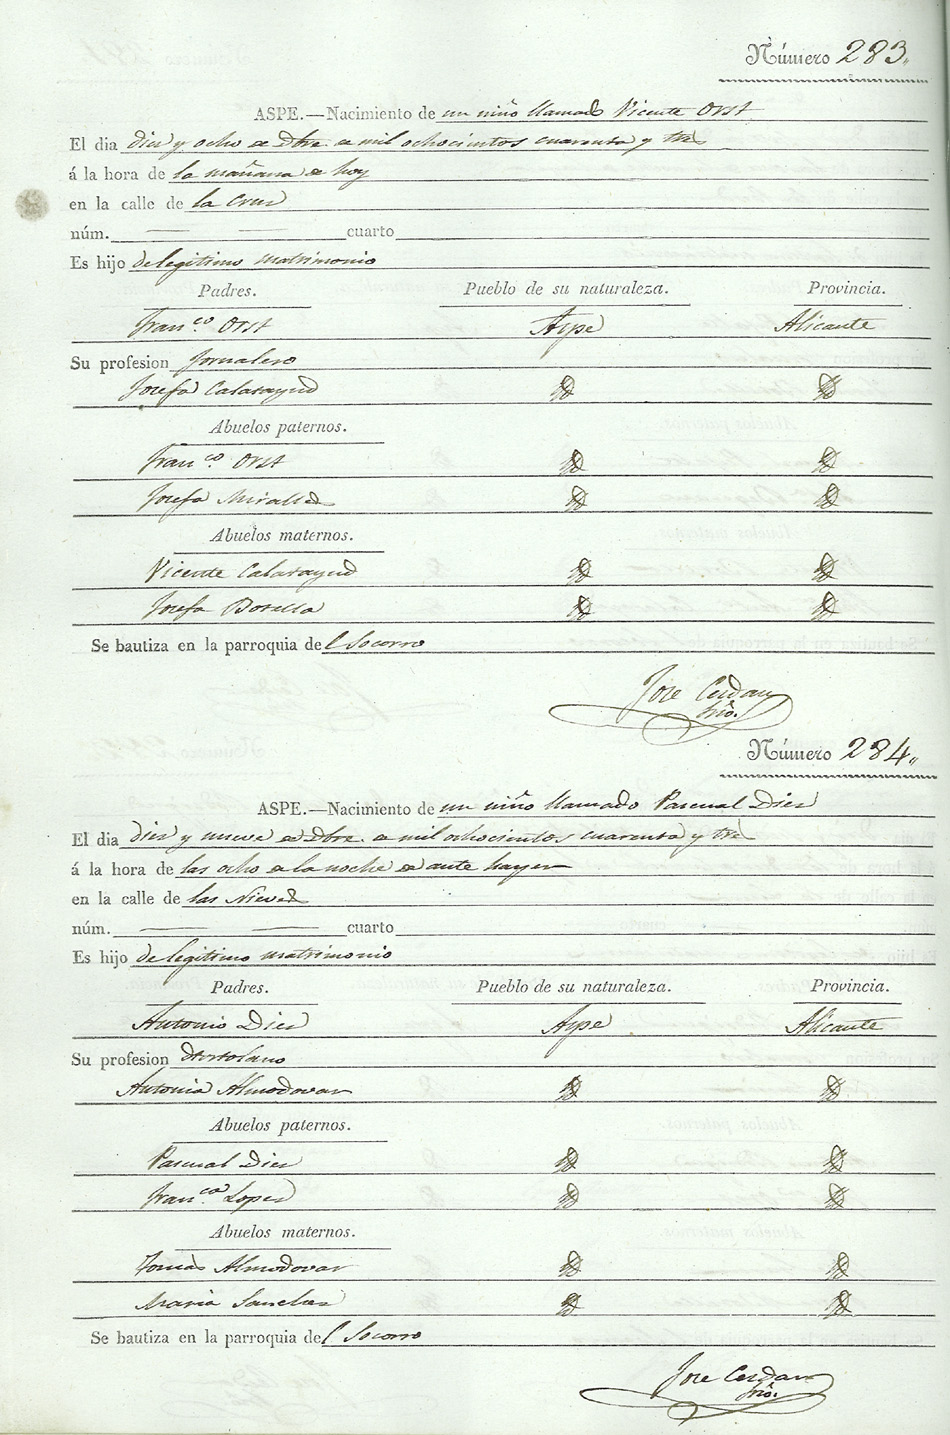 Número 283.
ASPE.—Nacimiento de un niño llamado Vicente Orst
El dia diez y ocho de Dbre. de mil ochocientos cuarenta y tres
á la hora de la mañana de hoy
en la calle de la Cruz
núm. — — cuarto
Es hijo de legitimo matrimonio
Padres. Pueblo de su naturaleza. Provincia.
Franco. Orst Aspe Alicante
Su profesion Jornalero
Josefa Calatayud
Abuelos paternos.
Franco. Orst
Josefa Miralles
Abuelos maternos.
Vicente Calatayud
Josefa Botella
Se bautiza en la parroquia del Socorro
Jose Cerdan
Srio.
Número 284.
ASPE.—Nacimiento de un niño llamado Pascual Diez
El dia diez y nueve de Dbre. de mil ochocientos cuarenta y tres
á la hora de las ocho de la noche de ante hayer
en la calle de las Nieves
núm. — — cuarto
Es hijo de legitimo matrimonio
Padres. Pueblo de su naturaleza. Provincia.
Antonio Diez Aspe Alicante
Su profesion Hortolano
Antonia Almodovar
Abuelos paternos.
Pascual Diez
Franca. Lopez
Abuelos maternos.
Tomás Almodovar
Maria Sanchez
Se bautiza en la parroquia del Socorro
Jose Cerdan
Srio.